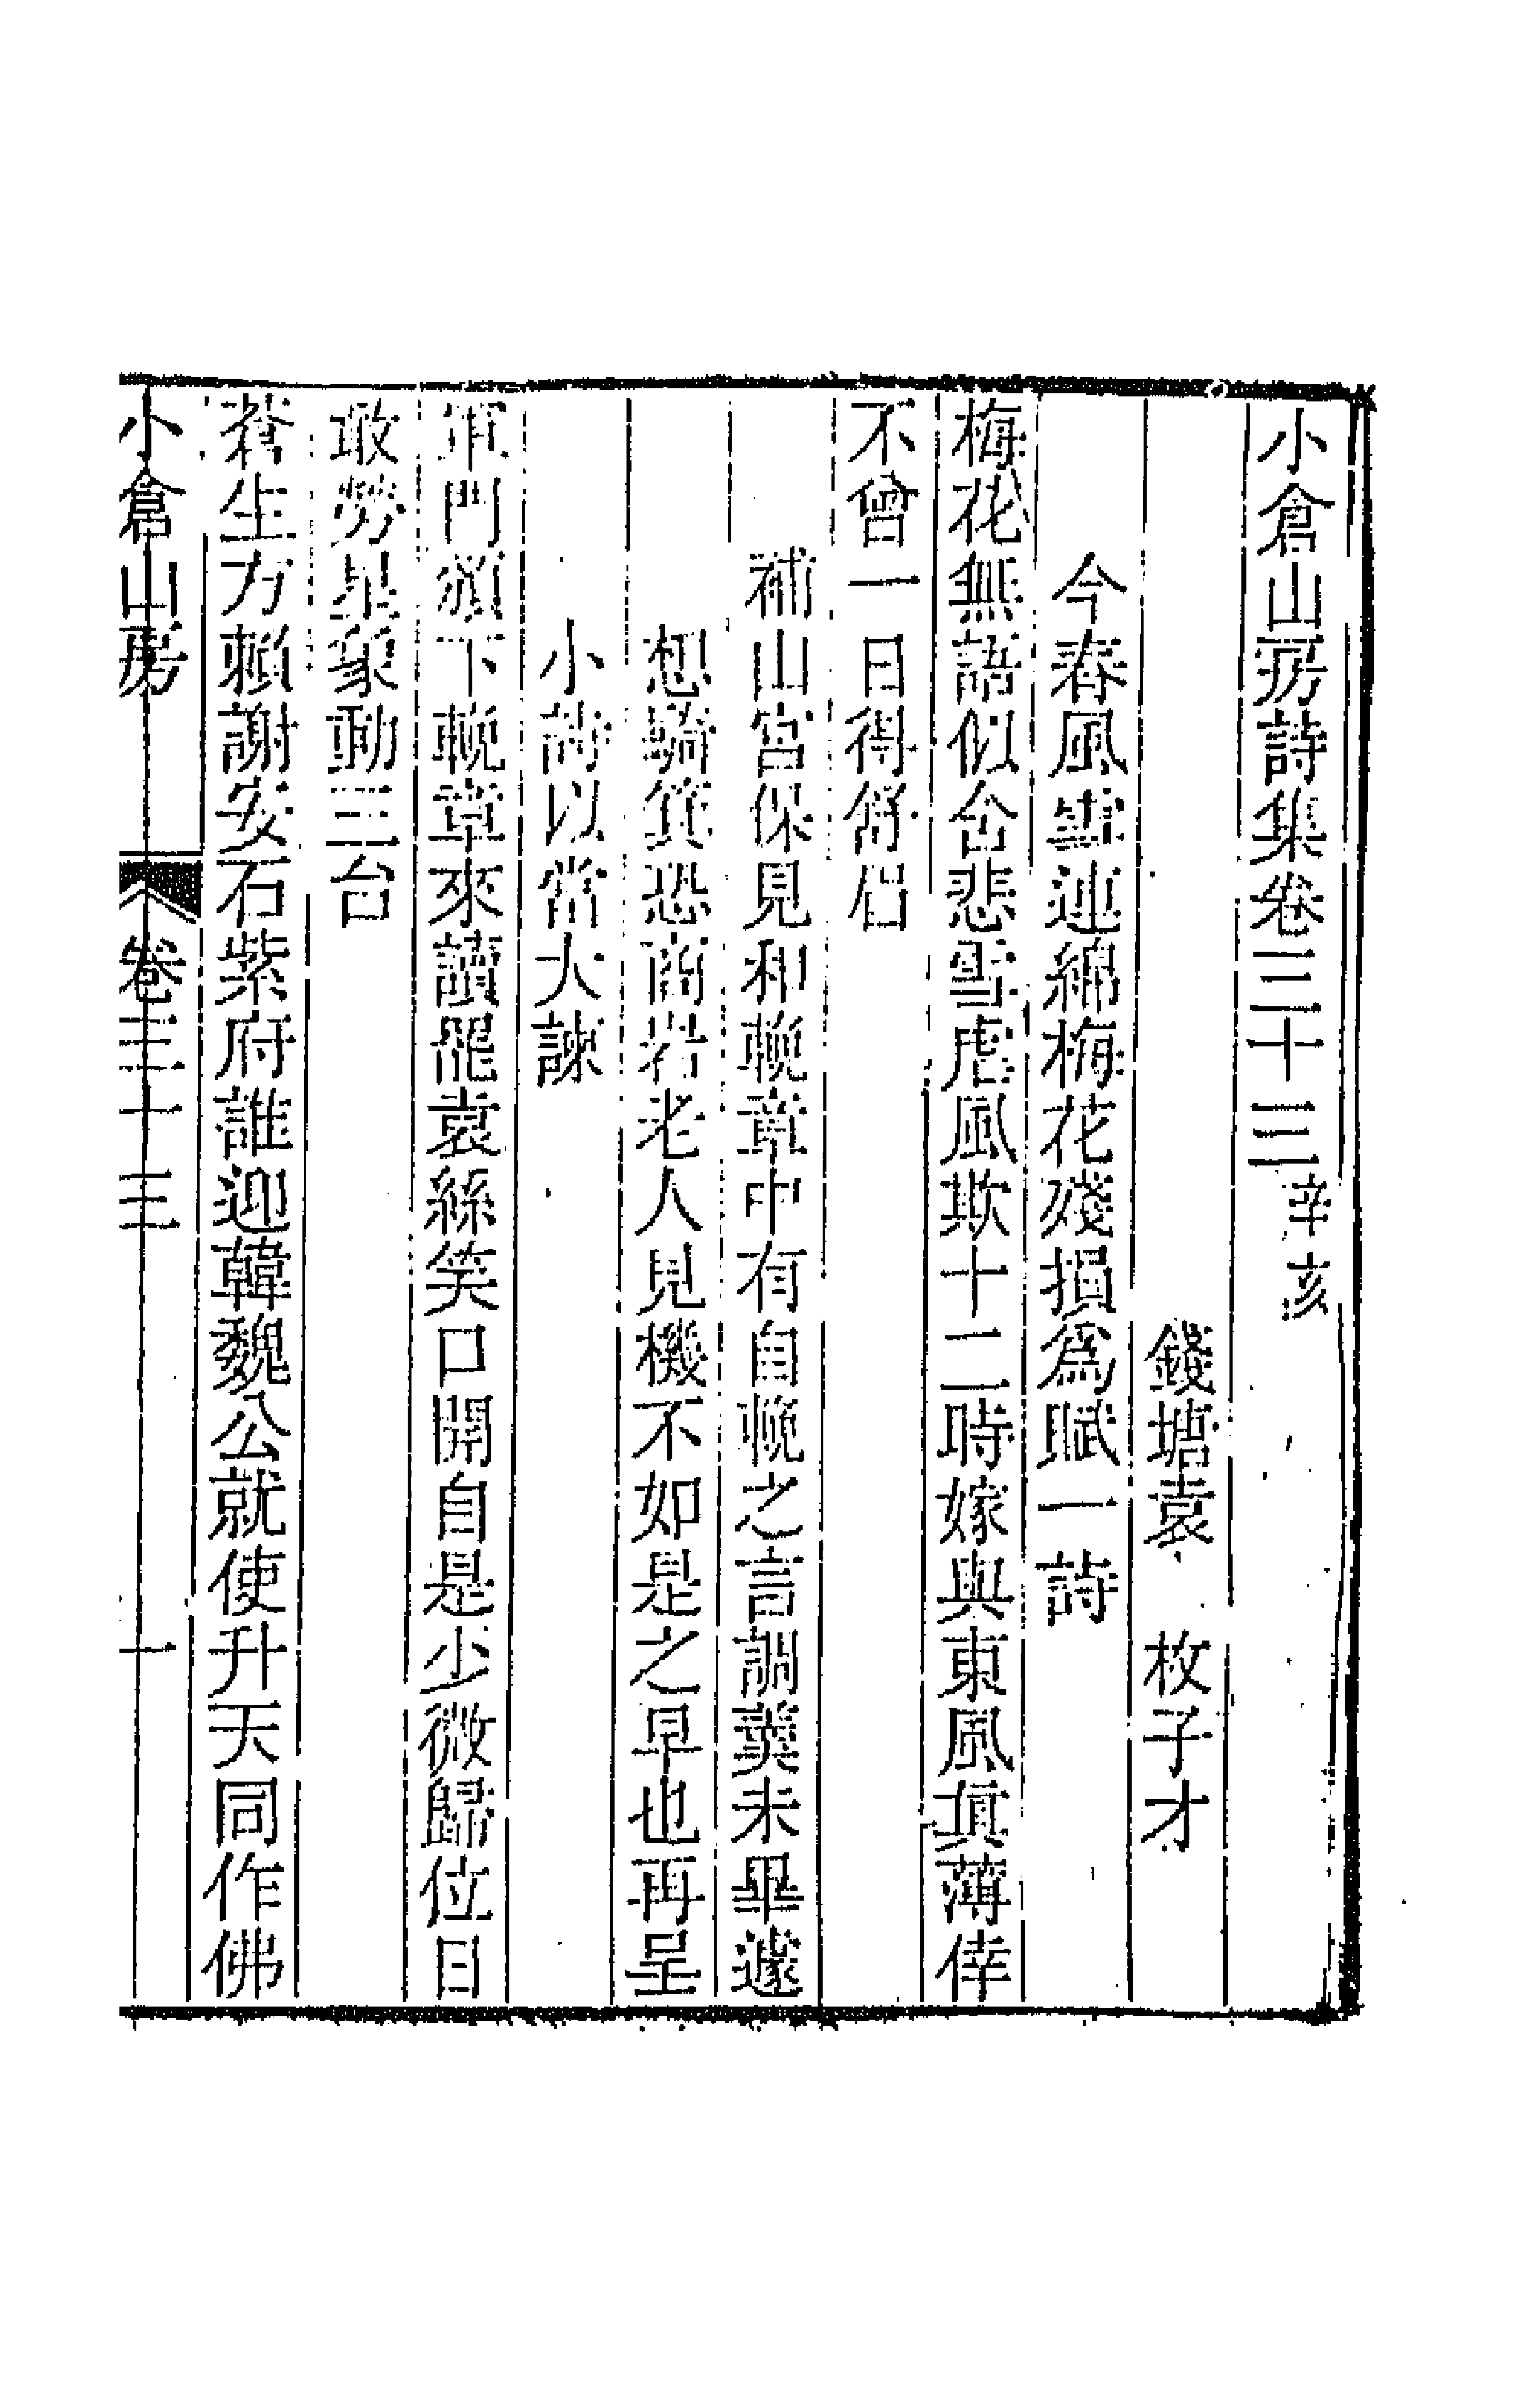 小倉山房詩集卷三十三辛亥
錢塘袁 枚子才
今春風雪連綿梅花殘損爲賦一詩
梅花無語似含悲雪虐風欺十二時嫁與東風眞薄倖
不曾一日得舒眉
補山宮保見和輓章中有自輓之言調羹未畢遽
想騎箕恐商岩老人見機不如是之早也再呈
小詩以當大諫
軍門頒下輓章來讀罷袁絲笑口開自是少微歸位日
敢勞星象動三台
蒼生方賴謝安石紫府誰迎韓魏公就使升天同作佛
小倉山房 卷三十三 一